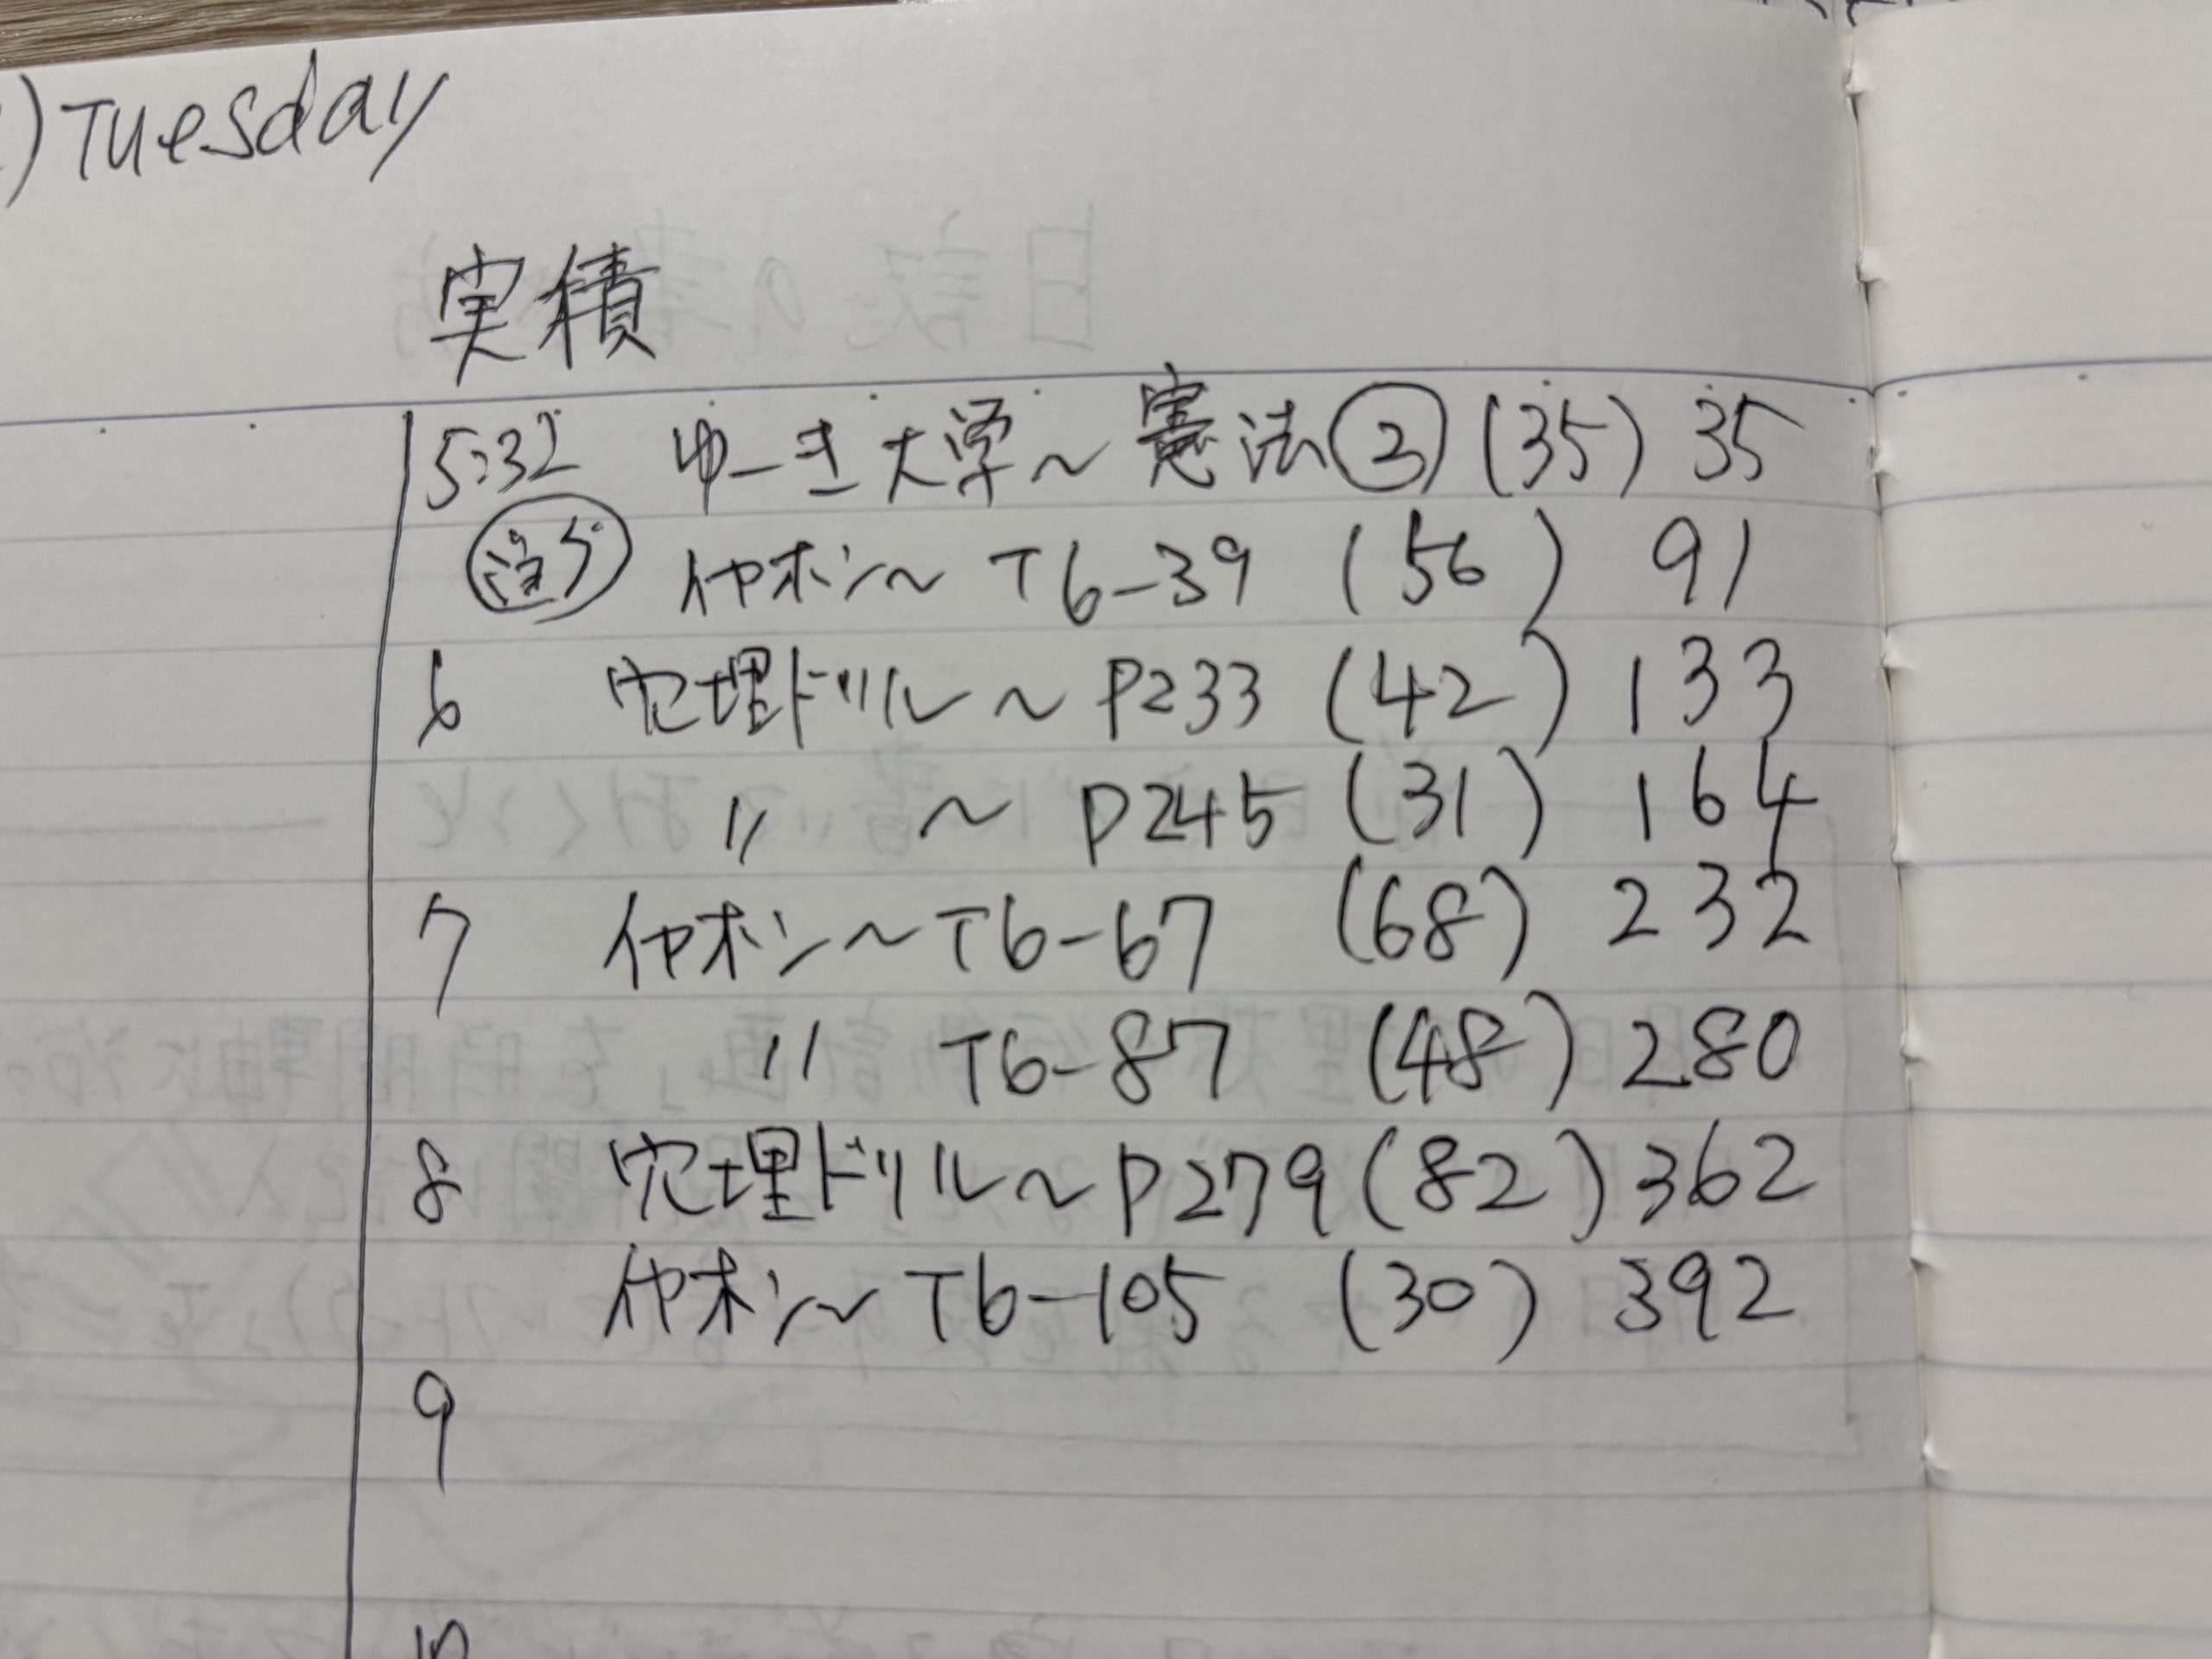 ) Tuesday
実積
5:32 ゆーき大学〜憲法③ (35) 35
イヤホン〜 T6-39 (56) 91
6 穴埋ドリル〜P233 (42) 133
〃 〜 P245 (31) 164
7 イヤホン〜T6-67 (68) 232
〃 T6-87 (48) 280
8 穴埋ドリル〜P279 (82) 362
イヤホン〜T6-105 (30) 392
9
10